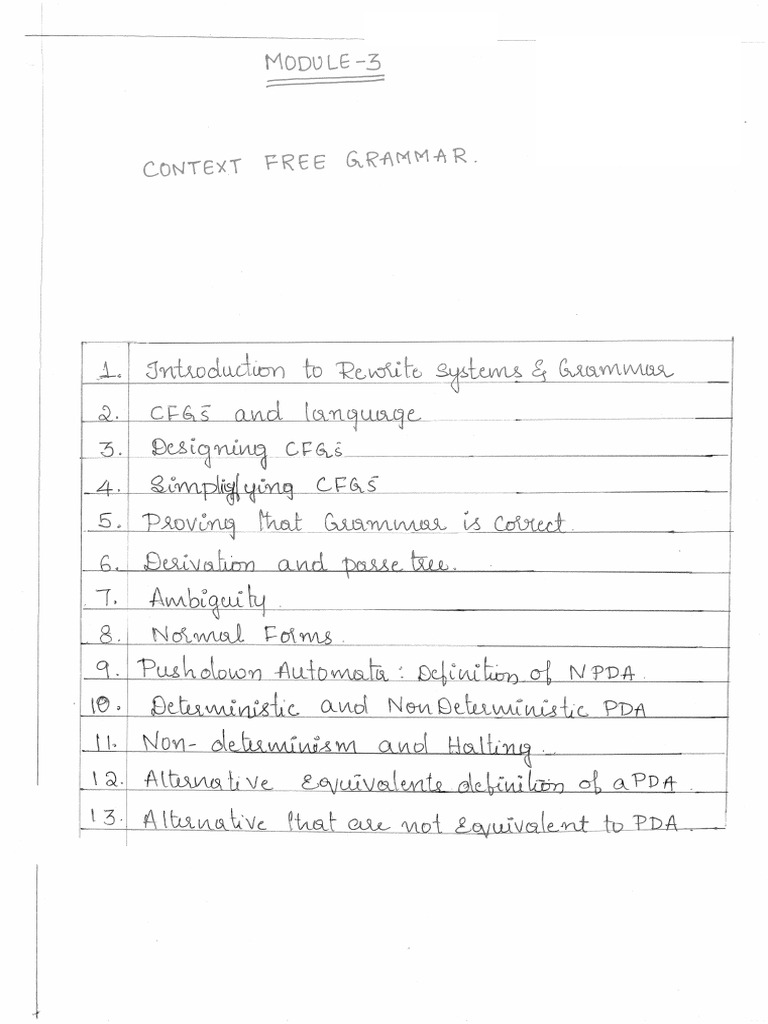 MODULE-3
CONTEXT FREE GRAMMAR.
1. Introduction to Rewrite Systems & Grammar
2. CFGs and language
3. Designing CFGs
4. Simplifying CFGs
5. Proving that Grammar is correct.
6. Derivation and parse tree.
7. Ambiguity.
8. Normal Forms.
9. Pushdown Automata: Definition of NPDA.
10. Deterministic and NonDeterministic PDA
11. Non-determinism and Halting.
12. Alternative Equivalents definition of a PDA.
13. Alternative that are not Equivalent to PDA.